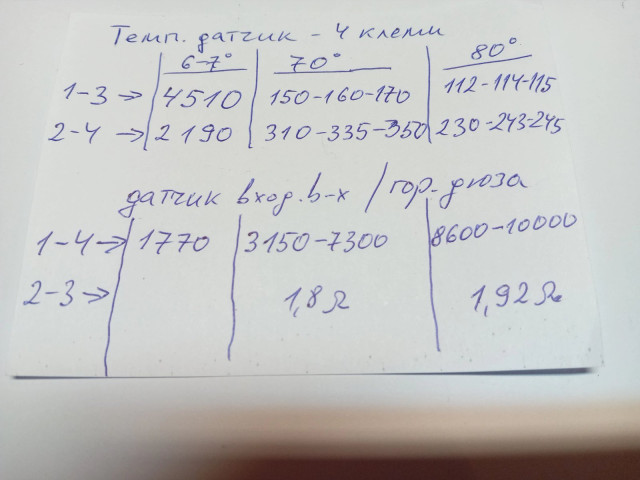 Темп. датчик - 4 клеми
6-7° 70° 80°
1-3 → 4510 150-160-170 112-114-115
2-4 → 2190 310-335-350 230-243-245
датчик вход. в-х / гор. дюза
1-4 → 1770 3150-7300 8600-10000
2-3 → 1,8 Ω 1,92 Ω